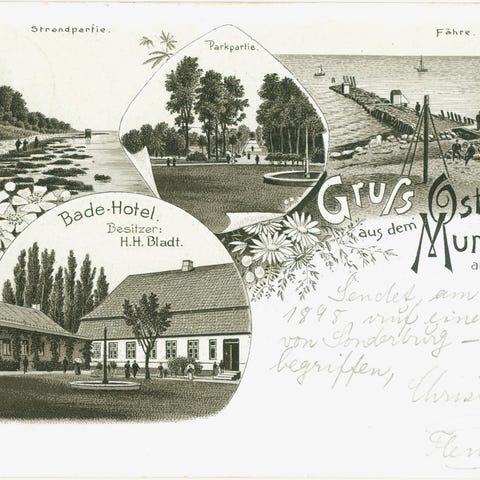 Strandpartie.
Parkpartie.
Fähre.
Bade-Hotel.
Besitzer:
H.H. Bladt.
Gruss
aus dem
Ost
Mur
a
Sendet, am
1898 eine
von Sonderburg –
begriffen,
Chris
Flen